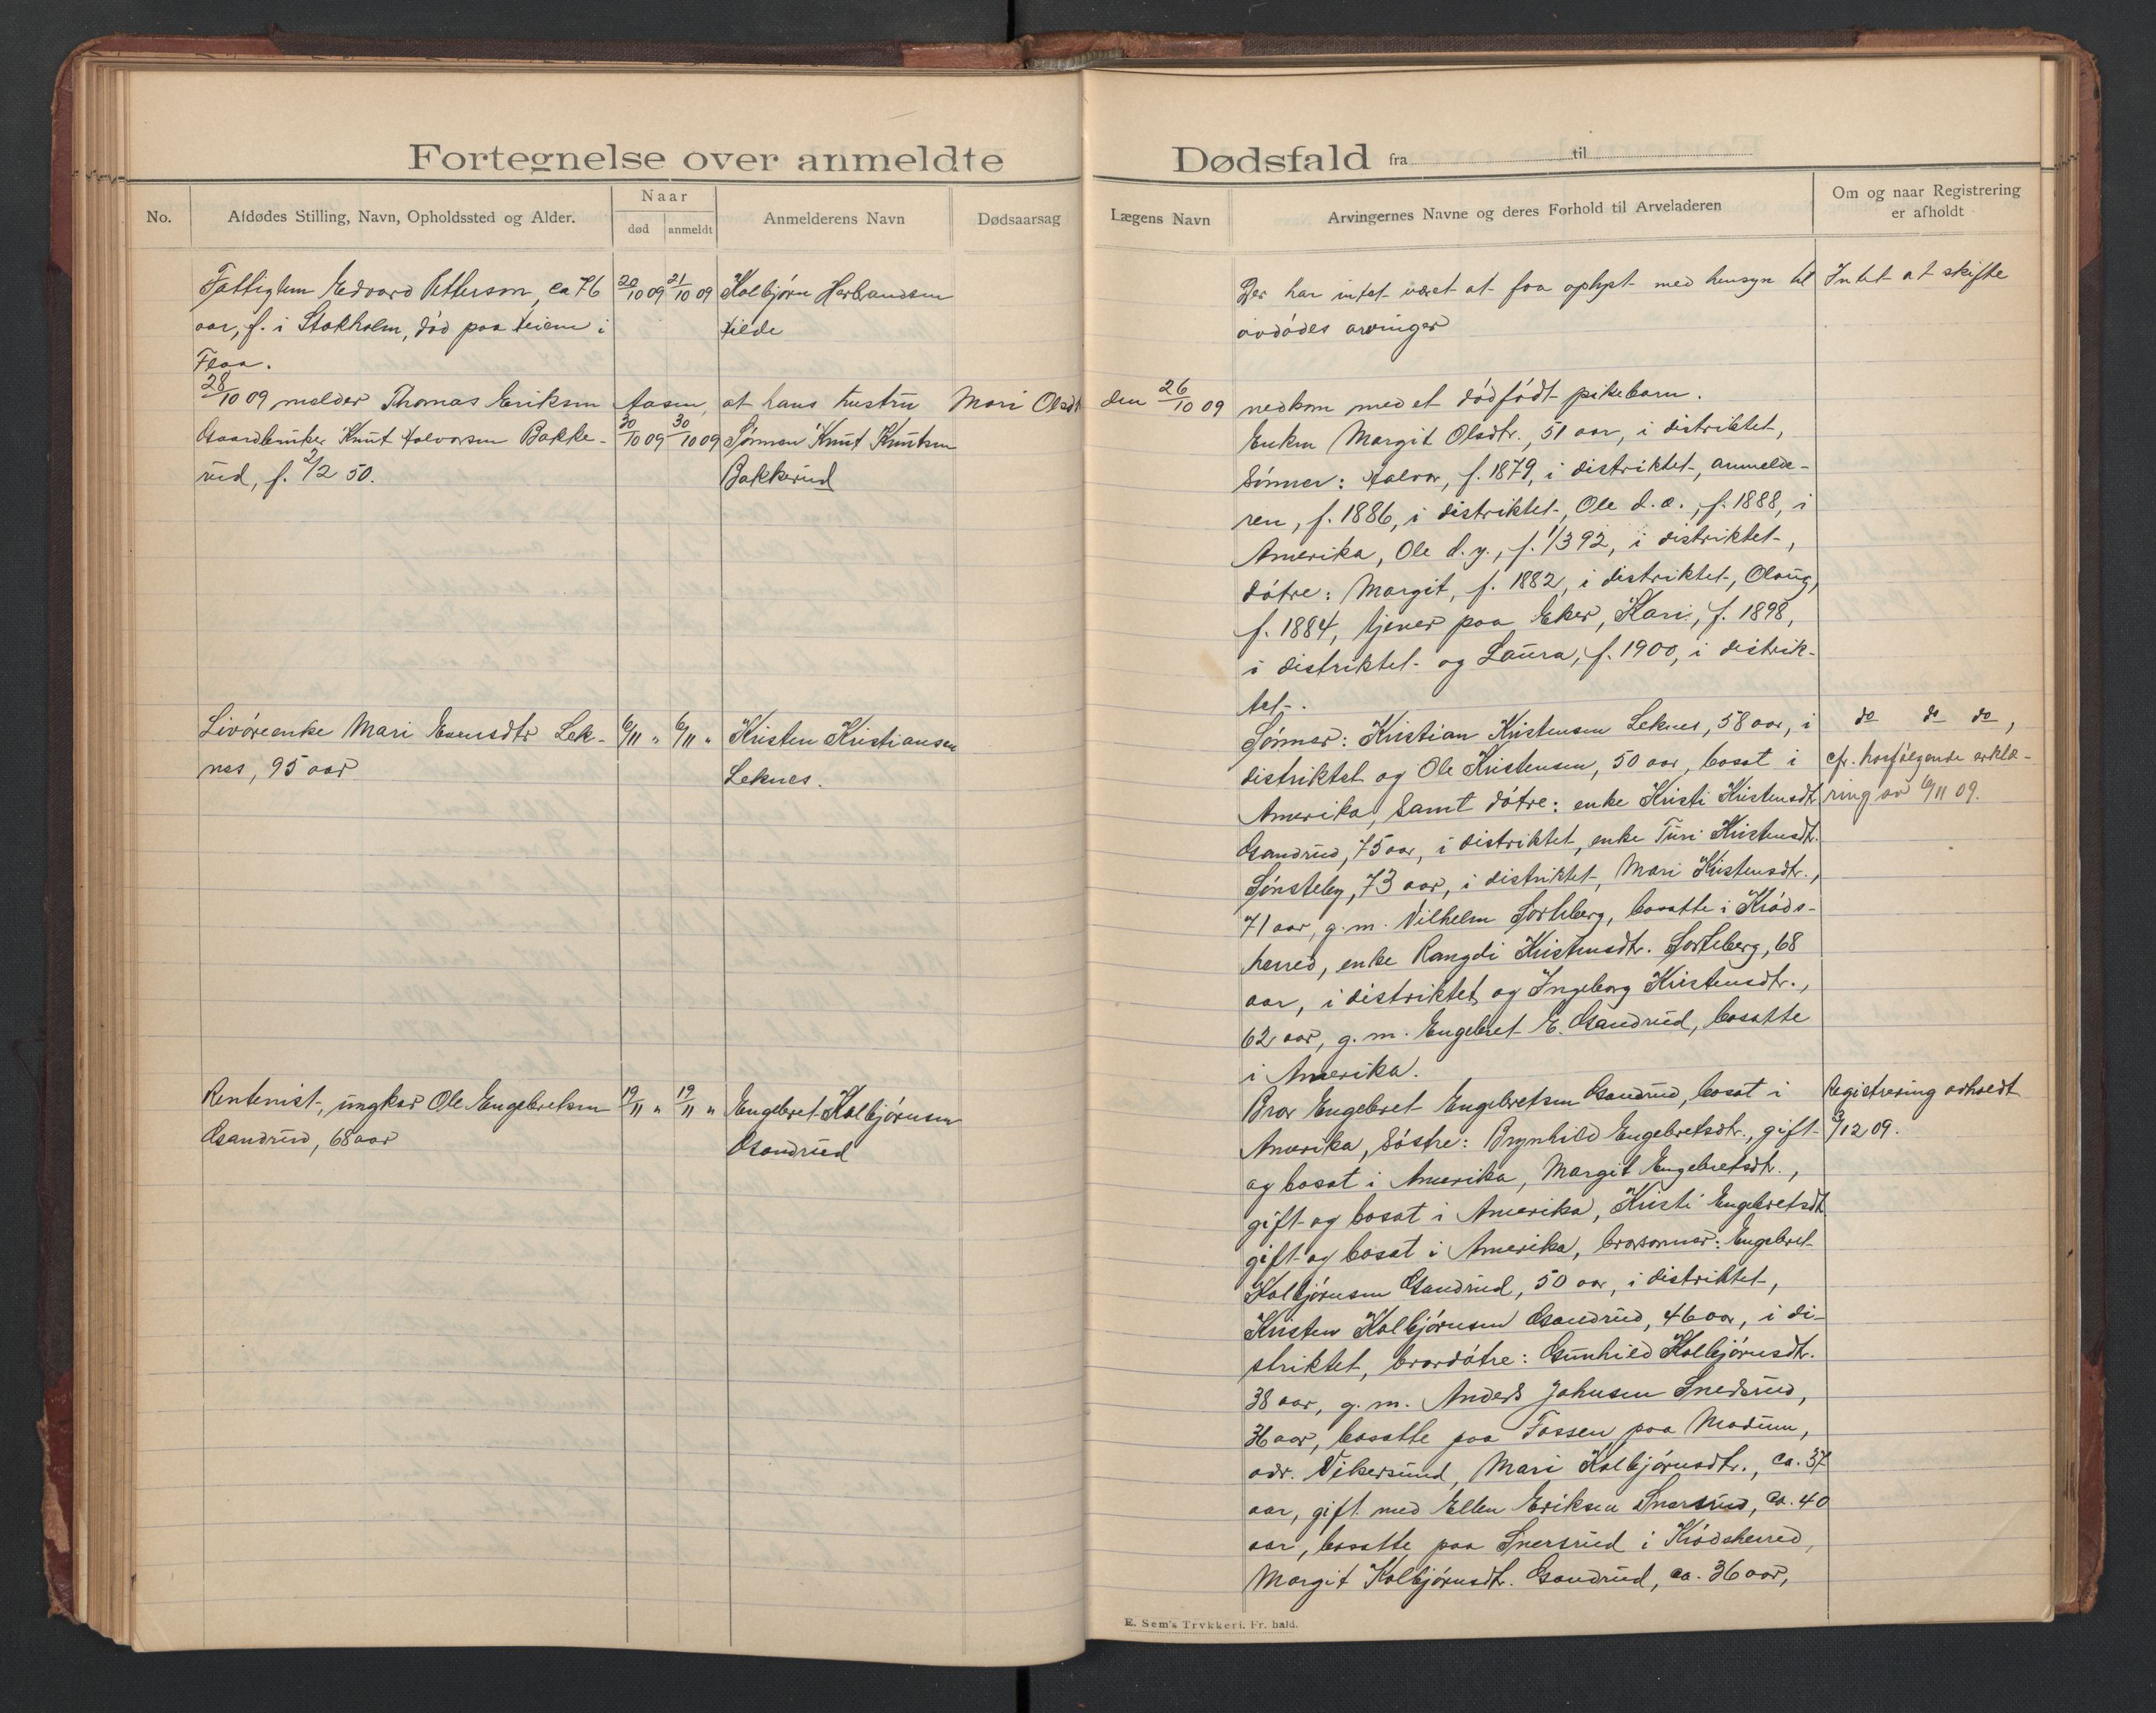 Fortegnelse over anmeldte Dødsfald fra til
No.
Afdødes Stilling, Navn, Opholdssted og Alder.
Naar
død
anmeldt
Anmelderens Navn
Dødsaarsag
Lægens Navn
Arvingernes Navne og deres Forhold til Arveladeren
Om og naar Registrering
er afholdt
Fattiglem Edvard Petterson, ca 76
aar, f. i Stokholm, død paa i
Flaa.
20/10 09
21/10 09
Kolbjørn Herbrandsen
Kilde
Der har intet været at faa oplyst med hensyn til
avdødes arvinger
Intet at skifte
28/10 09 melder Thomas Eriksen Aasen, at hans hustru Mari Olsdt den 26/10 09 nedkom med et dødfødt pikebarn.
Gaardbruker Knut Halvorsen Bakke-
rud, f. 2/2 50.
30/10 09
30/10 09
Sønnen Knut Knutsen
Bakkerud
Enken Margit Olsdtr., 51 aar, i distriktet,
Sønner: Halvor, f. 1879, i distriktet, anmelde-
ren, f. 1886, i distriktet, Ole d. æ., f. 1888, i
Amerika, Ole d. y., f. 1/3 92, i distriktet,
døtre: Margit, f. 1882, i distriktet, Olaug,
f. 1884, tjener paa Eker, Kari, f. 1898,
i distriktet og Laura, f. 1900, i distrik-
tet.
Livøreenke Mari Evensdtr Lek-
nes, 95 aar
6/11 "
6/11 "
Kristen Kristiansen
Leknes.
Sønner: Kristian Kristensen Leknes, 58 aar, i
distriktet og Ole Kristensen, 50 aar, bosat i
Amerika, samt døtre: enke Kristi Kristensdtr
Gandrud, 75 aar, i distriktet, enke Turi Kristensdtr.
Sønsteby, 73 aar, i distriktet, Mari Kristensdtr.,
71 aar, g. m. Vilhelm Sorteberg, bosatte i Krøds-
herred, enke Rangdi Kristensdtr. Sorteberg, 68
aar, i distriktet og Ingeborg Kristensdtr.,
62 aar, g. m. Engebret E. Gandrud, bosatte
i Amerika.
do do do,
cfr. hosfølgende erklæ-
ring av 6/11 09.
Rentenist, ungkar Ole Engebretsen
Gandrud, 68 aar
19/11 "
19/11 "
Engebret Kolbjørnsen
Gandrud
Bror Engebret Engebretsen Gandrud, bosat i
Amerika, Søstre: Brynhild Engebretsdtr., gift
og bosat i Amerika, Margit Engebretsdtr.,
gift og bosat i Amerika, Kristi Engebretsdtr
gift og bosat i Amerika, brorsønner: Engebret
Kolbjørnsen Gandrud, 50 aar, i distriktet,
Kristen Kolbjørnsen Gandrud, 46 aar, i di-
striktet, brordøtre: Gunhild Kolbjørnsdtr.
38 aar, g. m. Anders Johnsen Snedsrud,
36 aar, bosatte paa Fossen paa Modum,
adr. Vikersund, Mari Kolbjørnsdtr., ca. 37
aar, gift med Ellen Eriksen Snersrud, ca. 40
aar, bosatte paa Snersrud i Krødsherred,
Margit Kolbjørnsdtr. Gandrud, ca. 36 aar,
Registrering avholdt
3/12 09.
E. Sem's Trykkeri, Fr. hald.